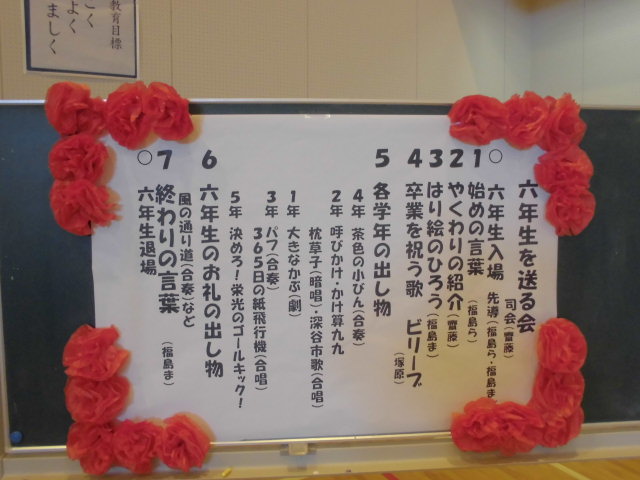 教育目標
こく
よく
ましく
六年生を送る会
司会(齋藤)
○ 六年生入場 先導(福島ら・福島ま)
1 始めの言葉 (福島ら)
2 やくわりの紹介 (齋藤)
3 はり絵のひろう (福島ま)
4 卒業を祝う歌 ビリーブ (塚原)
5 各学年の出し物
4年 茶色の小びん(合奏)
2年 呼びかけ・かけ算九九
枕草子(暗唱)・深谷市歌(合唱)
1年 大きなかぶ(劇)
3年 パフ(合奏)
365日の紙飛行機(合唱)
5年 決めろ！栄光のゴールキック！
6 六年生のお礼の出し物
風の通り道(合奏)など
7 終わりの言葉 (福島ま)
○ 六年生退場